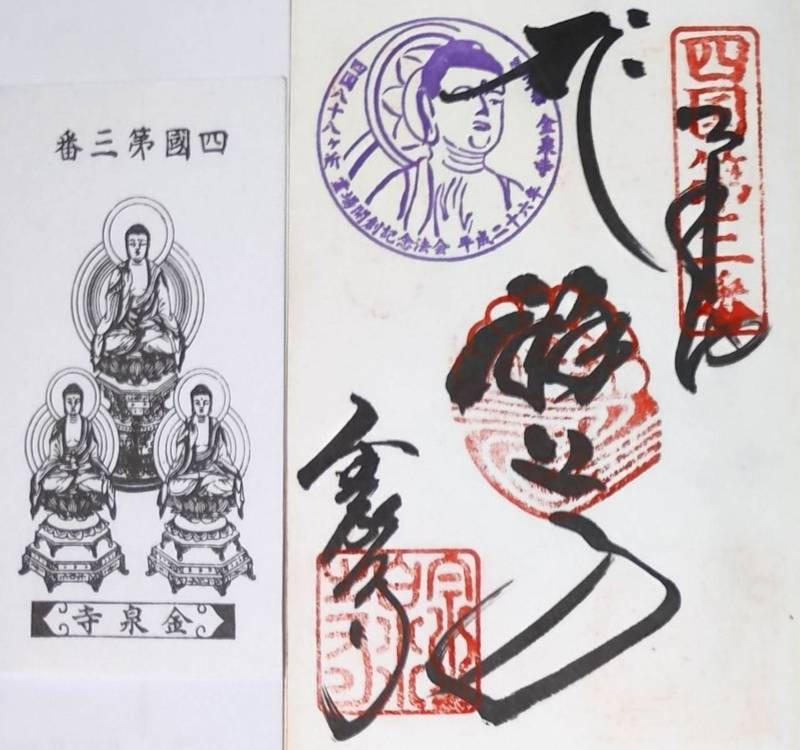 四國第三番
金泉寺
四国八十八ヶ所 霊場開創記念法会 平成二十六年
金泉寺
四国第三番
奉納
釈迦
金泉寺